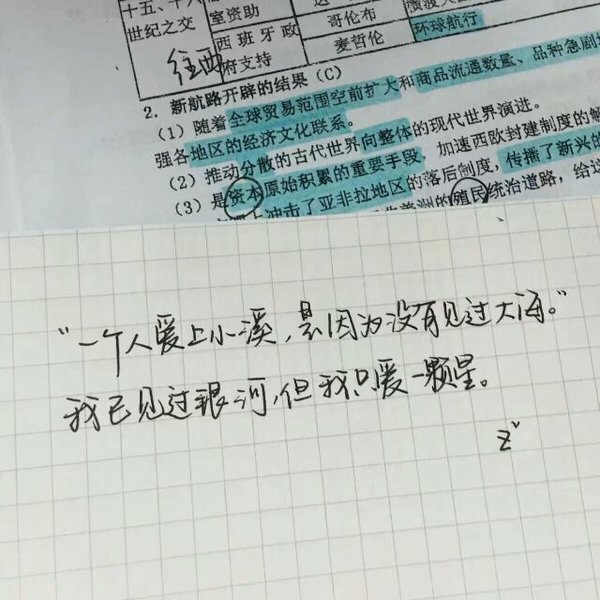 十五、十六
世纪之交
室资助
西班牙政
府支持
哥伦布
麦哲伦
环球航行
往西
2. 新航路开辟的结果（C）
（1）随着全球贸易范围空前扩大和商品流通数量、品种急剧增
强各地区的经济文化联系。
（2）推动分散的古代世界向整体的现代世界演进。
（3）是资本原始积累的重要手段，加速西欧封建制度的解
冲击了亚非拉地区的落后制度，传播了新兴的
美洲的殖民统治道路，给这
“一个人爱上小溪，是因为没有见过大海。”
我已见过银河，但我只爱一颗星。
z